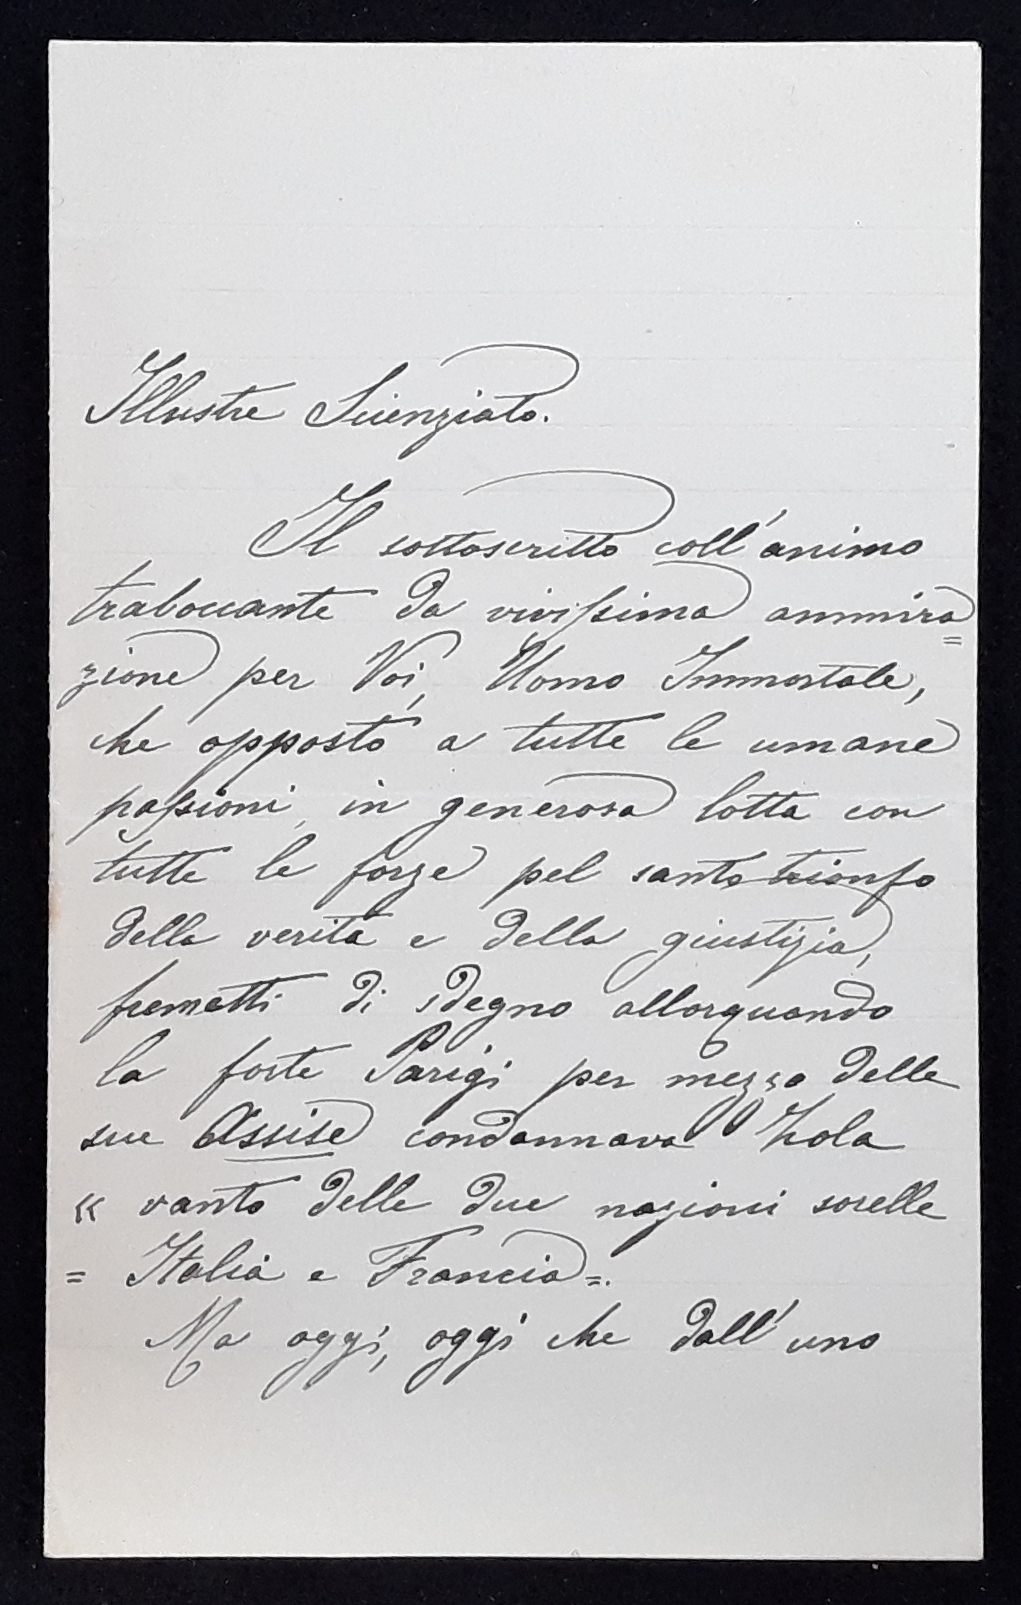 Illustre Scienziato.
Il sottoscritto coll'animo
traboccante da vivissima ammira=
zione per Voi, Uomo Immortale,
che opposto a tutte le umane
passioni, in generosa lotta con
tutte le forze pel santo trionfo
della verità e della giustizia,
fremetti di sdegno allorquando
la forte Parigi per mezzo delle
sue Assise condannava Zola
« vanto delle due nazioni sorelle
= Italia e Francia =.
Ma oggi, oggi che dall'uno